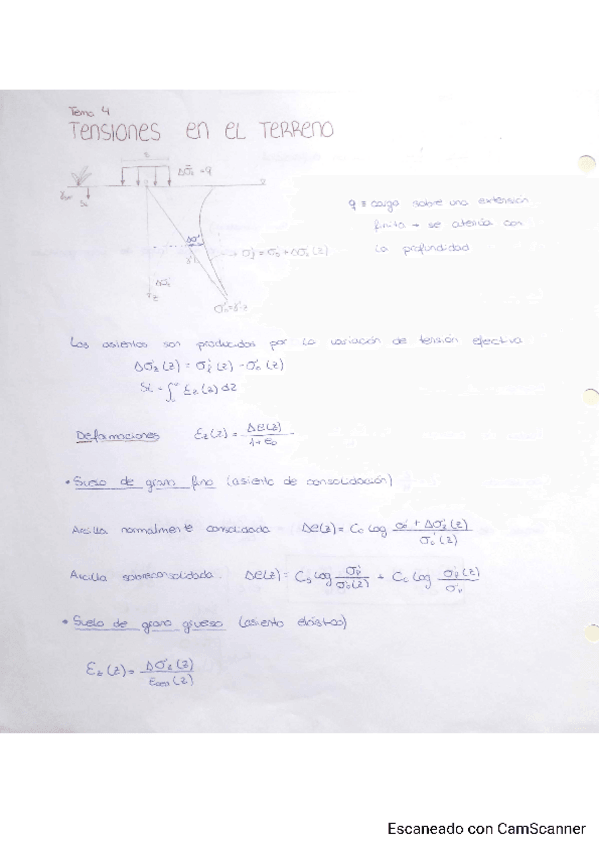 Tema 4
TENSIONES EN EL TERRENO
Δσ₀ = q
q = carga sobre una extensión
finita → se atenúa con
la profundidad
Δσ'
→ σ'f = σ'o + Δσ'z (z)
z
σ'o = γ'·z
Los asientos son producidos por la variación de tensión efectiva
Δσ'z (z) = σ'f (z) - σ'o (z)
Si = ∫ Ez (z) dz
Deformaciones Ez (z) = Δe(z) / 1+eo
• Suelo de grano fino (asiento de consolidación)
Arcilla normalmente consolidada Δe(z) = Cc log σo' + Δσ'z (z) / σo' (z)
Arcilla sobreconsolidada. Δe(z) = Cs log σ'p / σ'o (z) + Cc log σ'f (z) / σ'p
• Suelo de grano grueso (asiento elástico)
Ez (z) = Δσ'z (z) / Eoed (z)
Escaneado con CamScanner